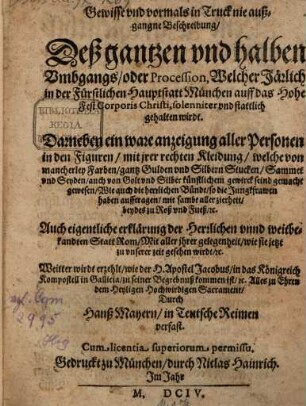 Gewisse vnd vormals in Truck nie auß-
gangne Beschreibung/
Deß gantzen vnd halben
Vmbgangs/ oder Procession, Welcher Järlich
in der Fürstlichen Hauptstatt München auff das Hohe
Fest Corporis Christi, solenniter vnd stattlich
gehalten wirdt.
BIBLIOTHECA
REGIA
Darneben ein ware anzeigung aller Personen
in den Figuren/ mit jrer rechten Kleidung/ welche von
mancherley Farben/ gantz Gulden vnd Silbern Stucken/ Sammet
vnd Seyden/ auch von Golt vnd Silber künstlichem gewirck seind gemacht
gewesen/ Wie auch die herrlichen Bünde/ so die Jungkfrawen
haben auffgetragen/ mit sambt aller zierheit/
beydes zu Roß vnd Fueß/ ꝛc.
Auch eigentliche erklärung der Herrlichen vnnd weitbe-
kandten Statt Rom/ Mit aller jhrer gelegenheit/ wie sie jetzt
zu vnserer zeit gesehen wirdt/ ꝛc.
Weitter wirdt erzehlt/ wie der H. Apostel Jacobus/ in das Königreich
Kompostell in Gallicia/ zu seiner Begrebnuß kommen ist/ ꝛc. Alles zu Ehren
dem Heyligen Hochwirdigen Sacrament/
Durch
Hanß Mayern/ in Teutsche Reimen
verfast.
Cum licentia superiorum permissu.
Gedruckt zu München/ durch Niclas Hainrich.
Im Jahr
M. DCIV.
2995